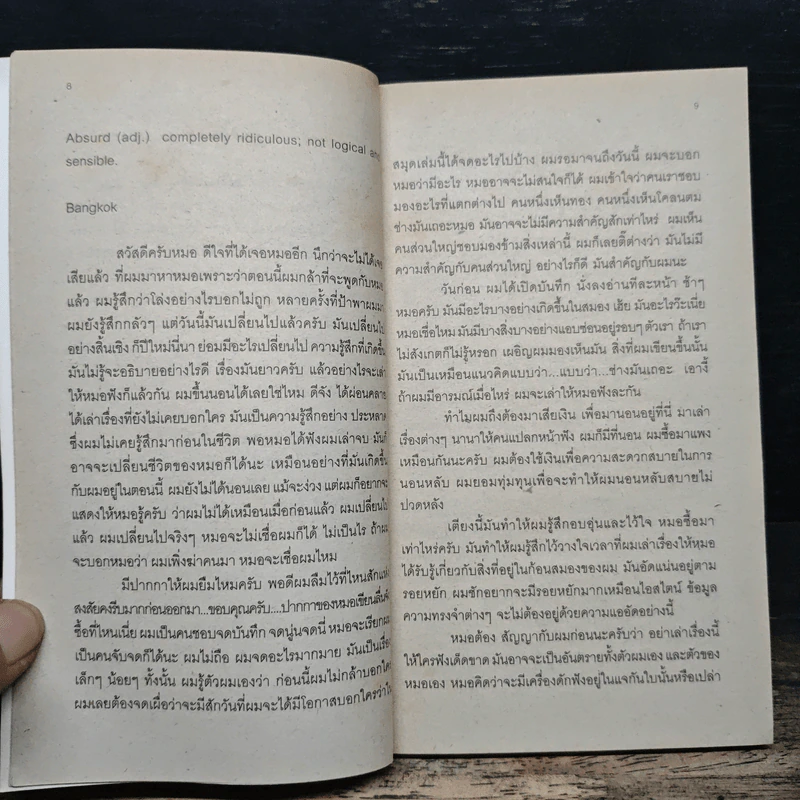 8
Absurd (adj.) completely ridiculous; not logical and
sensible.
Bangkok
สวัสดีครับหมอ ดีใจที่ได้เจอหมออีก นึกว่าจะไม่ได้เจอ
เสียแล้ว ที่ผมมาหาหมอเพราะว่าตอนนี้ผมกล้าที่จะพูดกับหมอ
แล้ว ผมรู้สึกว่าโล่งอย่างไรบอกไม่ถูก หลายครั้งที่ป้าพาผมมา
ผมยังรู้สึกกลัวๆ แต่วันนี้มันเปลี่ยนไปแล้วครับ มันเปลี่ยนไป
อย่างสิ้นเชิง ก็ปีใหม่นี่นา ย่อมมีอะไรเปลี่ยนไป ความรู้สึกที่เกิดขึ้น
มันไม่รู้จะอธิบายอย่างไรดี เรื่องมันยาวครับ แล้วอย่างไรจะเล่า
ให้หมอฟังก็แล้วกัน ผมขึ้นนอนได้เลยใช่ไหม ดีจัง ได้ผ่อนคลาย
ได้เล่าเรื่องที่ยังไม่เคยบอกใคร มันเป็นความรู้สึกอย่าง ประหลาด
ซึ่งผมไม่เคยรู้สึกมาก่อนในชีวิต พอหมอได้ฟังผมเล่าจบ มันก็
อาจจะเปลี่ยนชีวิตของหมอก็ได้นะ เหมือนอย่างที่มันเกิดขึ้น
กับผมอยู่ในตอนนี้ ผมยังไม่ได้นอนเลย แม้จะง่วง แต่ผมก็อยากจะ
แสดงให้หมอรู้ครับ ว่าผมไม่ได้เหมือนเมื่อก่อนแล้ว ผมเปลี่ยนไป
แล้ว ผมเปลี่ยนไปจริงๆ หมอจะไม่เชื่อผมก็ได้ ไม่เป็นไร ถ้าผม
จะบอกหมอว่า ผมเพิ่งฆ่าคนมา หมอจะเชื่อผมไหม
มีปากกาให้ผมยืมไหมครับ พอดีผมลืมไว้ที่ไหนสักแห่ง
สงสัยคงรีบมากก่อนออกมา...ขอบคุณครับ....ปากกาของหมอเขียนลื่นจัง
ซื้อที่ไหนเนี่ย ผมเป็นคนชอบจดบันทึก จดนู่นจดนี่ หมอจะเรียกผม
เป็นคนจับจดก็ได้นะ ผมไม่ถือ ผมจดอะไรมากมาย มันเป็นเรื่อง
เล็กๆ น้อยๆ ทั้งนั้น ผมรู้ตัวผมเองว่า ก่อนนี้ผมไม่กล้าบอกใคร
ผมเลยต้องจดเผื่อว่าจะมีสักวันที่ผมจะได้มีโอกาสบอกใครว่าใน
9
สมุดเล่มนี้ได้จดอะไรไปบ้าง ผมรอมาจนถึงวันนี้ ผมจะบอก
หมอว่ามีอะไร หมออาจจะไม่สนใจก็ได้ ผมเข้าใจว่าคนเราชอบ
มองอะไรที่แตกต่างไป คนหนึ่งเห็นทอง คนหนึ่งเห็นโคลนตม
ช่างมันเถอะหมอ มันอาจจะไม่มีความสำคัญสักเท่าไหร่ ผมเห็น
คนส่วนใหญ่ชอบมองข้ามสิ่งเหล่านี้ ผมก็เลยตี๊ต่างว่า มันไม่มี
ความสำคัญกับคนส่วนใหญ่ อย่างไรก็ดี มันสำคัญกับผมนะ
วันก่อน ผมได้เปิดบันทึก นั่งลงอ่านทีละหน้า ช้าๆ
หมอครับ มันมีอะไรบางอย่างเกิดขึ้นในสมอง เฮ้ย มันอะไรวะเนี่ย
หมอเชื่อไหม มันมีบางสิ่งบางอย่างแอบซ่อนอยู่รอบๆ ตัวเรา ถ้าเรา
ไม่สังเกตก็ไม่รู้หรอก เผอิญผมมองเห็นมัน สิ่งที่ผมเขียนขึ้นนั้น
มันเป็นเหมือนแนวคิดแบบว่า...แบบว่า...ช่างมันเถอะ เอางี้
ถ้าผมมีอารมณ์เมื่อไหร่ ผมจะเล่าให้หมอฟังละกัน
ทำไมผมถึงต้องมาเสียเงิน เพื่อมานอนอยู่ที่นี่ มาเล่า
เรื่องต่างๆ นานาให้คนแปลกหน้าฟัง ผมก็มีที่นอน ผมซื้อมาแพง
เหมือนกันนะครับ ผมต้องใช้เงินเพื่อความสะดวกสบายในการ
นอนหลับ ผมยอมทุ่มทุนเพื่อจะทำให้ผมนอนหลับสบายไม่
ปวดหลัง
เตียงนี้มันทำให้ผมรู้สึกอบอุ่นและไว้ใจ หมอซื้อมา
เท่าไหร่ครับ มันทำให้ผมรู้สึกไว้วางใจเวลาที่ผมเล่าเรื่องให้หมอ
ได้รับรู้เกี่ยวกับสิ่งที่อยู่ในก้อนสมองของผม มันอัดแน่นอยู่ตาม
รอยหยัก ผมชักอยากจะมีรอยหยักมากเหมือนไอสไตน์ ข้อมูล
ความทรงจำต่างๆ จะไม่ต้องอยู่ด้วยความแออัดอย่างนี้
หมอต้อง สัญญากับผมก่อนนะครับว่า อย่าเล่าเรื่องนี้
ให้ใครฟังเด็ดขาด มันอาจจะเป็นอันตรายทั้งตัวผมเอง และตัวของ
หมอเอง หมอคิดว่าจะมีเครื่องดักฟังอยู่ในแจกันใบนั้นหรือเปล่า